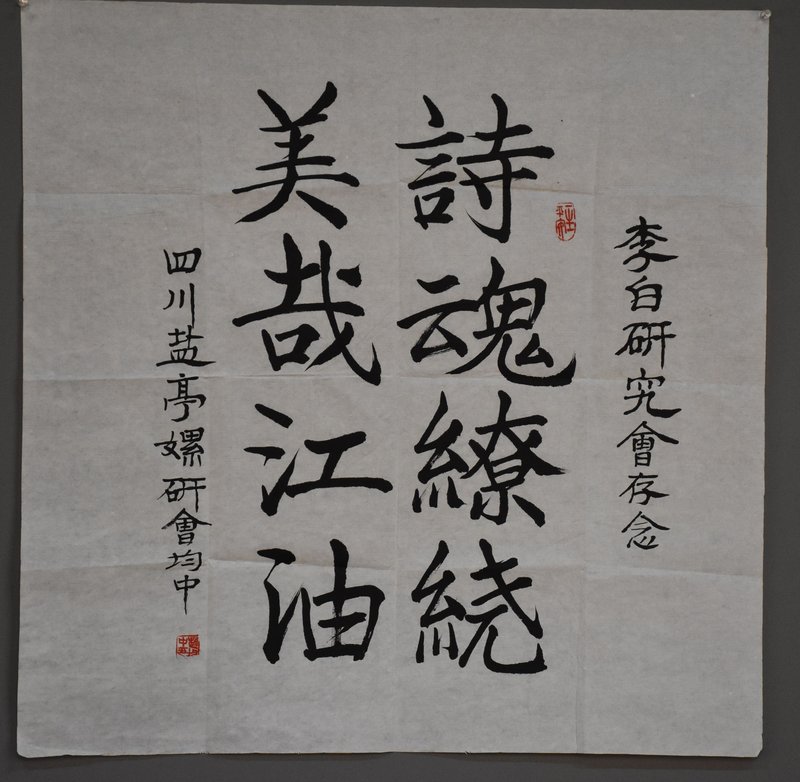 李白研究會存念
詩魂繚绕
美哉江油
四川盐亭嫘研會均中